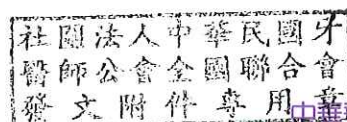 社團法人中華民國牙
醫師公會全國聯合會
發文附件專用章
中華